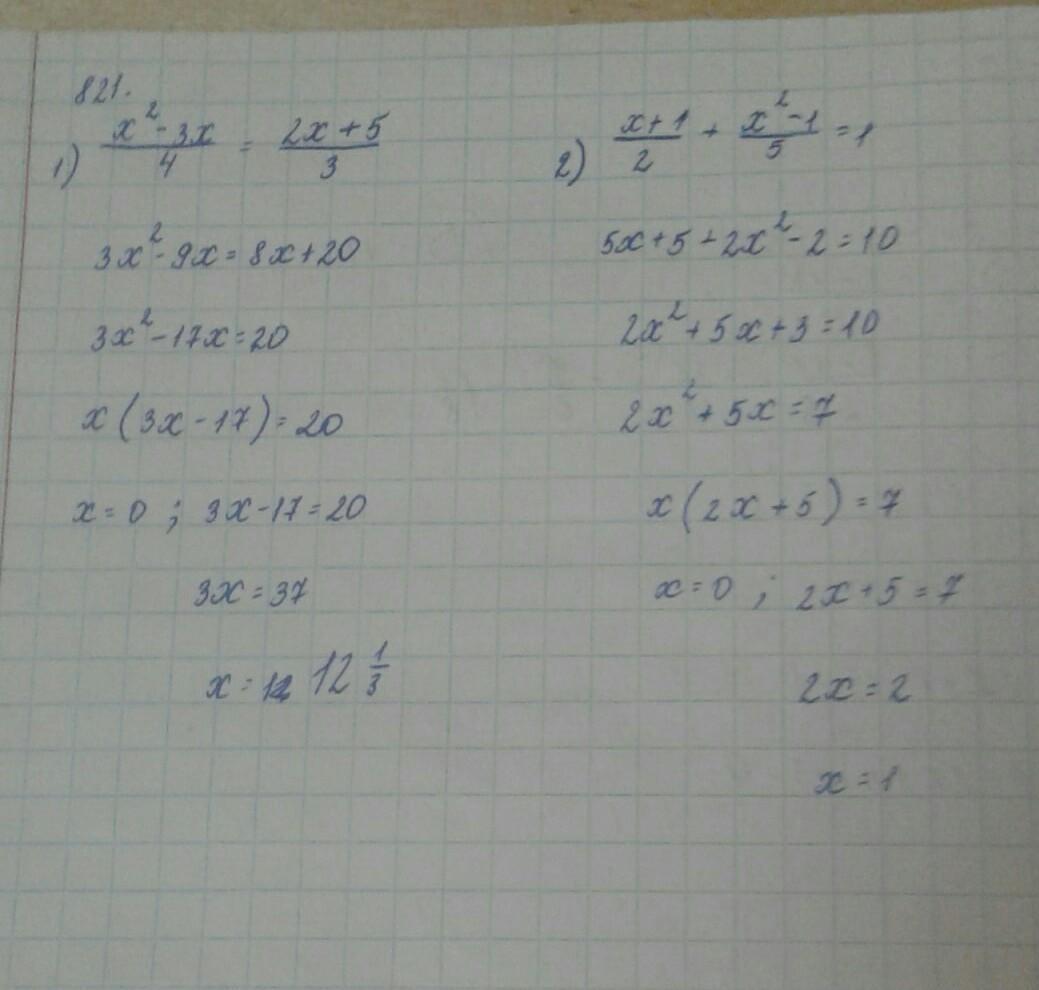 821.
1) (x² - 3x)/4 = (2x + 5)/3
3x² - 9x = 8x + 20
3x² - 17x = 20
x(3x - 17) = 20
x = 0 ; 3x - 17 = 20
3x = 37
x = 12 1/3
2) (x + 1)/2 + (x² - 1)/5 = 1
5x + 5 + 2x² - 2 = 10
2x² + 5x + 3 = 10
2x² + 5x = 7
x(2x + 5) = 7
x = 0 ; 2x + 5 = 7
2x = 2
x = 1